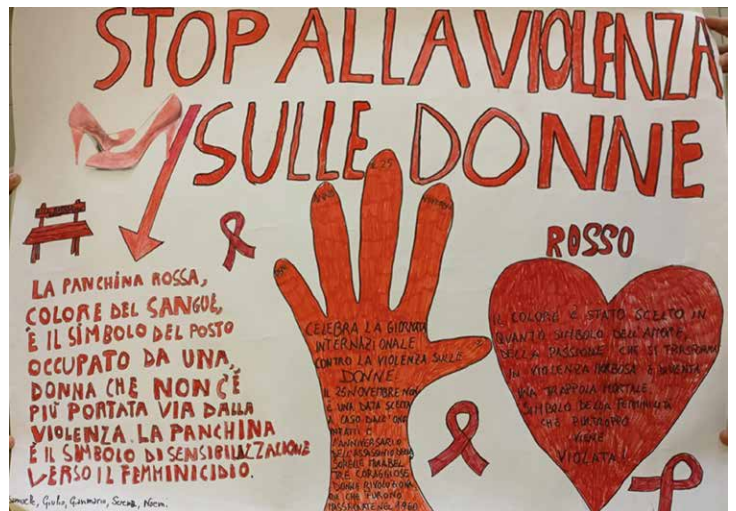 STOP ALLA VIOLENZA
SULLE DONNE
LA PANCHINA ROSSA,
COLORE DEL SANGUE,
È IL SIMBOLO DEL POSTO
OCCUPATO DA UNA
DONNA CHE NON C'È
PIÙ PORTATA VIA DALLA
VIOLENZA. LA PANCHINA
È IL SIMBOLO DI SENSIBILAZZAZIONE
VERSO IL FEMMINICIDIO.
Giulio, Gennaro, Noemi.
IL 25
CELEBRA LA GIORNATA
INTERNAZIONALE
CONTRO LA VIOLENZA SULLE
DONNE
IL 25 NOVEMBRE NON
È UNA DATA SCELTA
A CASO DALL'ONU
INFATTI È
L'ANNIVERSARIO
DELL'ASSASSINIO DELLE
SORELLE MIRABEL
TRE CORAGGIOSE
DONNE RIVOLUZIONA
RIE CHE FURONO
NEL 1960
ROSSO
IL COLORE È STATO SCELTO IN
QUANTO SIMBOLO DELL'AMORE,
DELLA PASSIONE CHE SI TRASFORMA
IN VIOLENZA MORBOSA E DIVENTA
UNA TRAPPOLA MORTALE.
SIMBOLO DELLA FEMMINILITÀ
CHE PURTROPPO
VIENE
VIOLATA!